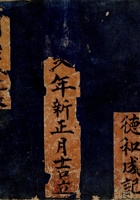 德和成記
亥年新正月吉立